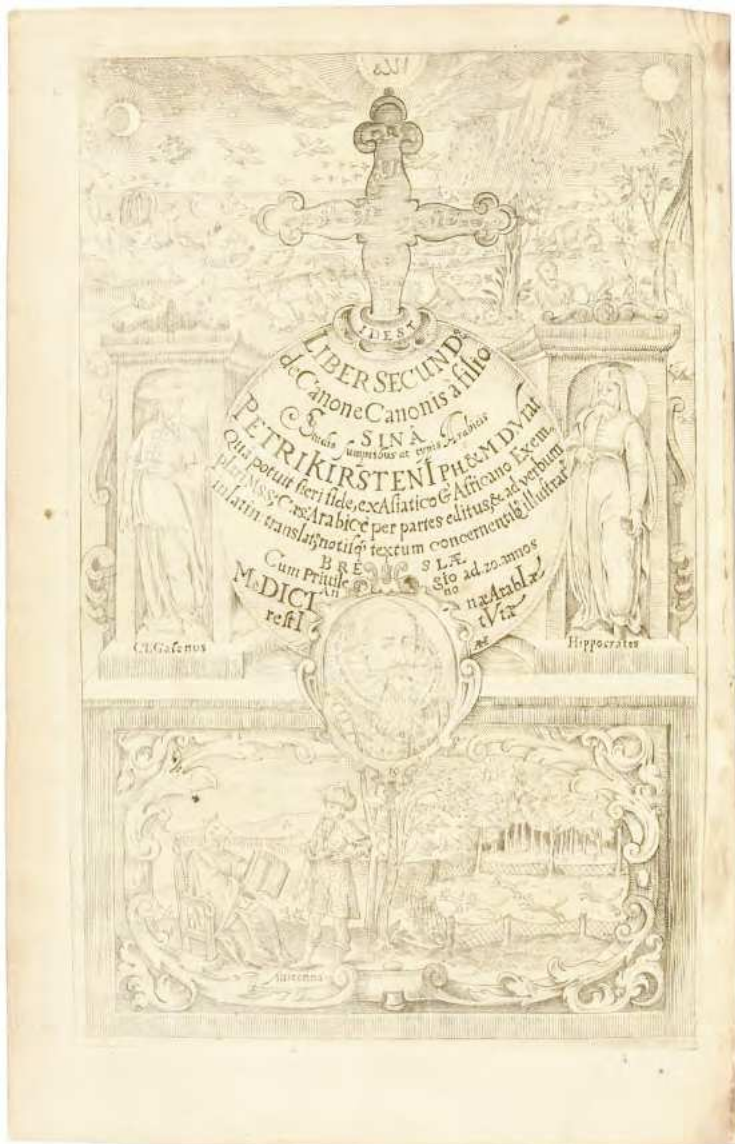 الله
IDEST
LIBER SECUNDq
de Canone Canonis à filio
SINA
Studio sumptibus ac typis Arabicis
PETRI KIRSTENI PH. & M. D Vrat
Qua potuit fieri fide, ex Asiatico & Africano Exem-
Arabicè per partes editus, & ad verbum
in latin translatq notisq; textum concernentibq illustratq
BRE SLÆ
Cum Privile gio ad 20. annos
An no
MeDICI næ ArabIæ
restI tVtæ
Cl. Galenus
Hippocrates
Auicenna